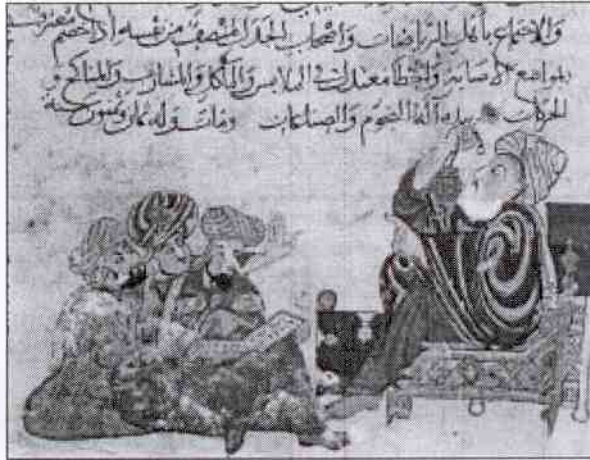 والاجتماع باهل الرياضات واصحاب الجدل منصف من نفسه اذا خصم معترف
بمواضع الاصابة والخطا معتدل في الملابس والماكل والمشارب والمناكح و
الحركات بيده آلة النجوم والساعات ومات وله ثمان وستون سنة